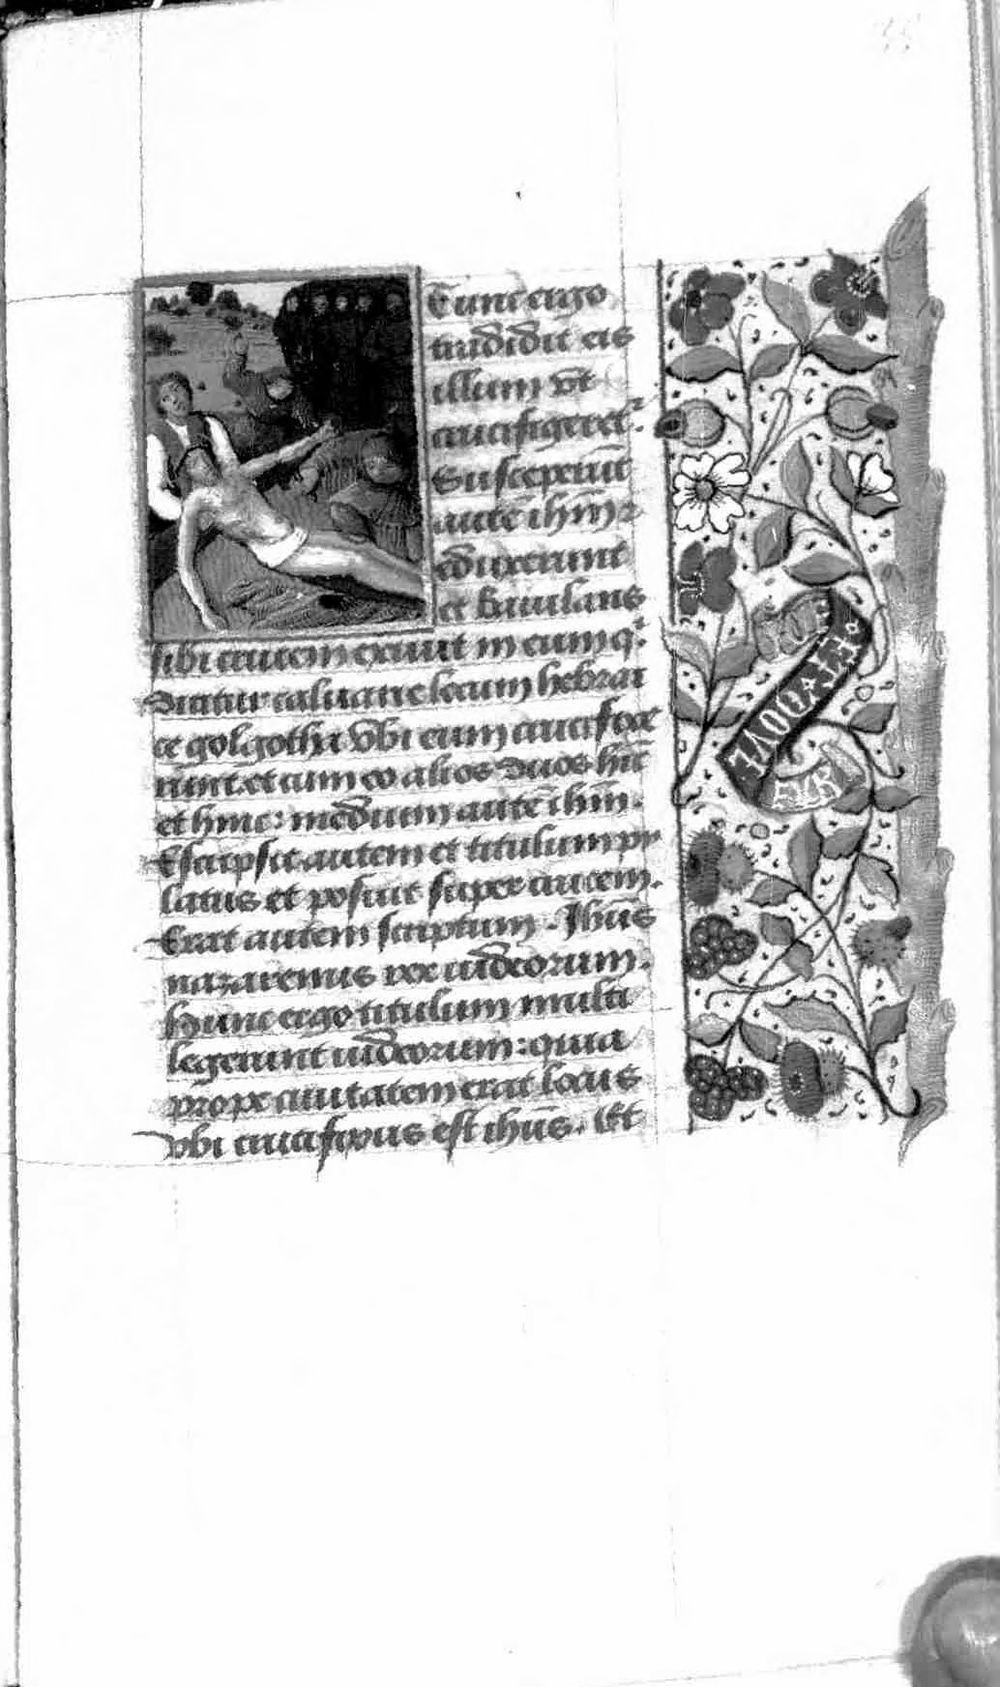 Tunc ergo
tradidit eis
illum vt
crucifigeret̃.
Susceperũt
autẽ ihm̃ ⁊
eduxerunt
et baiulans
sibi crucem exiuit in eum q̃
dicitur caluarie locum hebrai
ce golgotha vbi eum crucifixe
runt. et cum eo alios duos hĩc
et hinc: medium autẽ ihm̃.
Escripsit autem et titulum py
latus et posuit super crucem.
Erat autem scriptum. Jhũs
nazarenus rex iudeorum.
Hunc ergo titulum multi
legerunt iudeorum: quia
prope ciuitatem erat locus
vbi crucifixus est ihũs. Et